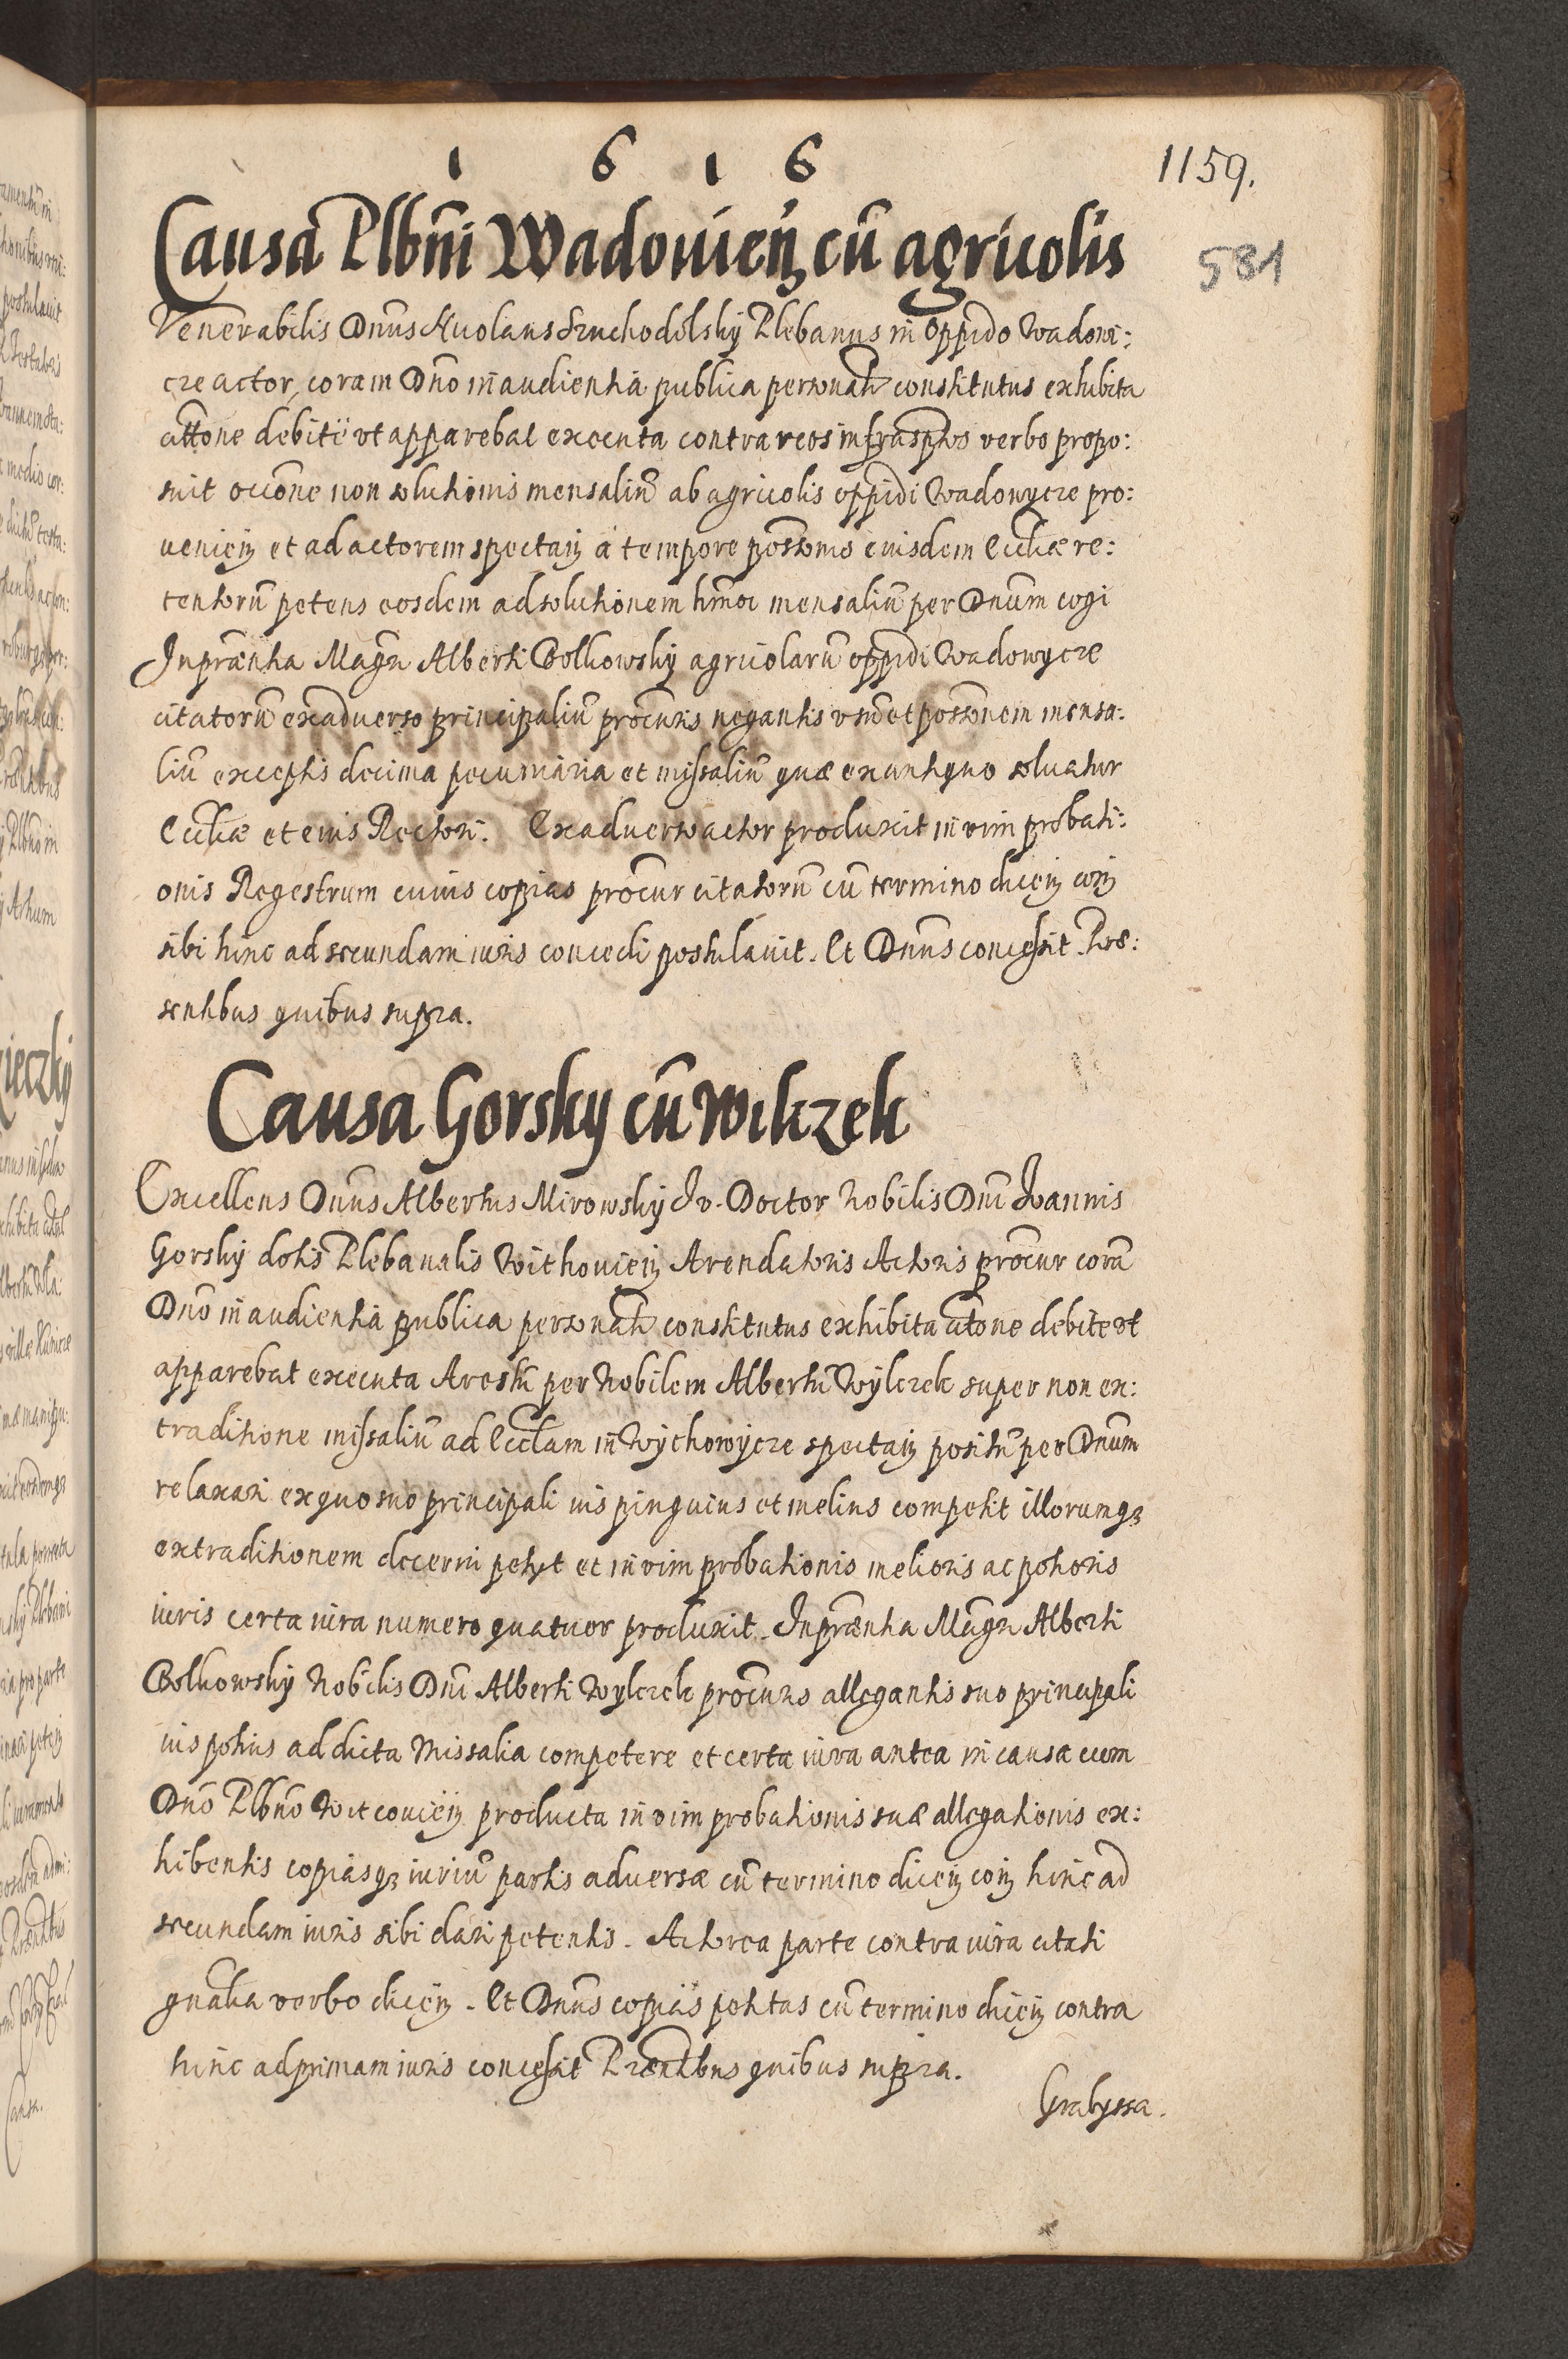 1 6 1 6
1159.
581
Causa Plbñi Wadovieñ cũ agricolis
Venerabilis Dnũs Nicolaus Suchodolsky Plebanus in oppido Wadowi:
cze actor, coram Dño in audientia publica personalr̃ constitutus exhibita
cittõne debite ut apparebat executa contra reos infrascrip̃tos verbo propo:
suit occõne non solutionis mensaliũ ab agricolis oppidi Wadowycze pro:
venieñ et ad actorem spectañ à tempore possõnis eiusdem Eccliæ re:
tentorũ petens eosdem ad solutionem hm̃oi mensaliũ per Dnũm cogi
In præntia Magri Alberti Bolkowsky agricolarũ oppidi Wadowycze
citatorũ ex adverso principaliũ procuris negantis usũ et possõnem mensa:
liũ exceptis decima pecuniaria et missaliũ quæ ex antiquo solvatur
Eccliæ et eius Rectori. Ex adverso actor produxit in vim probati:
onis Regestrum cuius copias procur citatorũ cũ termino diceñ coñ
sibi hinc ad secundam iuris concedi postulavit. Et Dnũs concessit. Præ:
sentibus quibus supra.
Causa Gorsky cũ Wilczek
Excellens Dnũs Albertus Mirowsky J. v. Doctor Nobilis Dñi Joannis
Gorsky dotis Plebanalis Withovieñ Arendatoris Actoris procur corã
Dño in audientia publica personalr̃ constitutus exhibita citõne debite ut
apparebat executa Arestũ per Nobilem Albertũ Wylczek super non ex:
traditione missaliũ ad Eccłam in Wythowycze spectañ positũ per Dnũm
relaxari ex quo suo principali ius pinguius et melius competit illorumq3
extraditionem decerni petyt et in vim probationis melioris ac potioris
iuris certa iura numero quatuor produxit. In præntia Magri Alberti
Bolkowsky Nobilis Dñi Alberti Wylczek procuris allegantis suo principali
ius potius ad dicta Missalia competere et certa iura antea in causa cum
Dño Plbño Witcovieñ producta in vim probationis suæ allegationis ex:
hibentis copiasq3 iuriũ partis adversæ cũ termino diceñ coñ hinc ad
secundam iuris sibi dari petentis. Actorea parte contra iura citati
gñalia verbo diceñ. Et Dnũs copias petitas cũ termino diceñ contra
hinc ad primam iuris concessit Præntibus quibus supra.